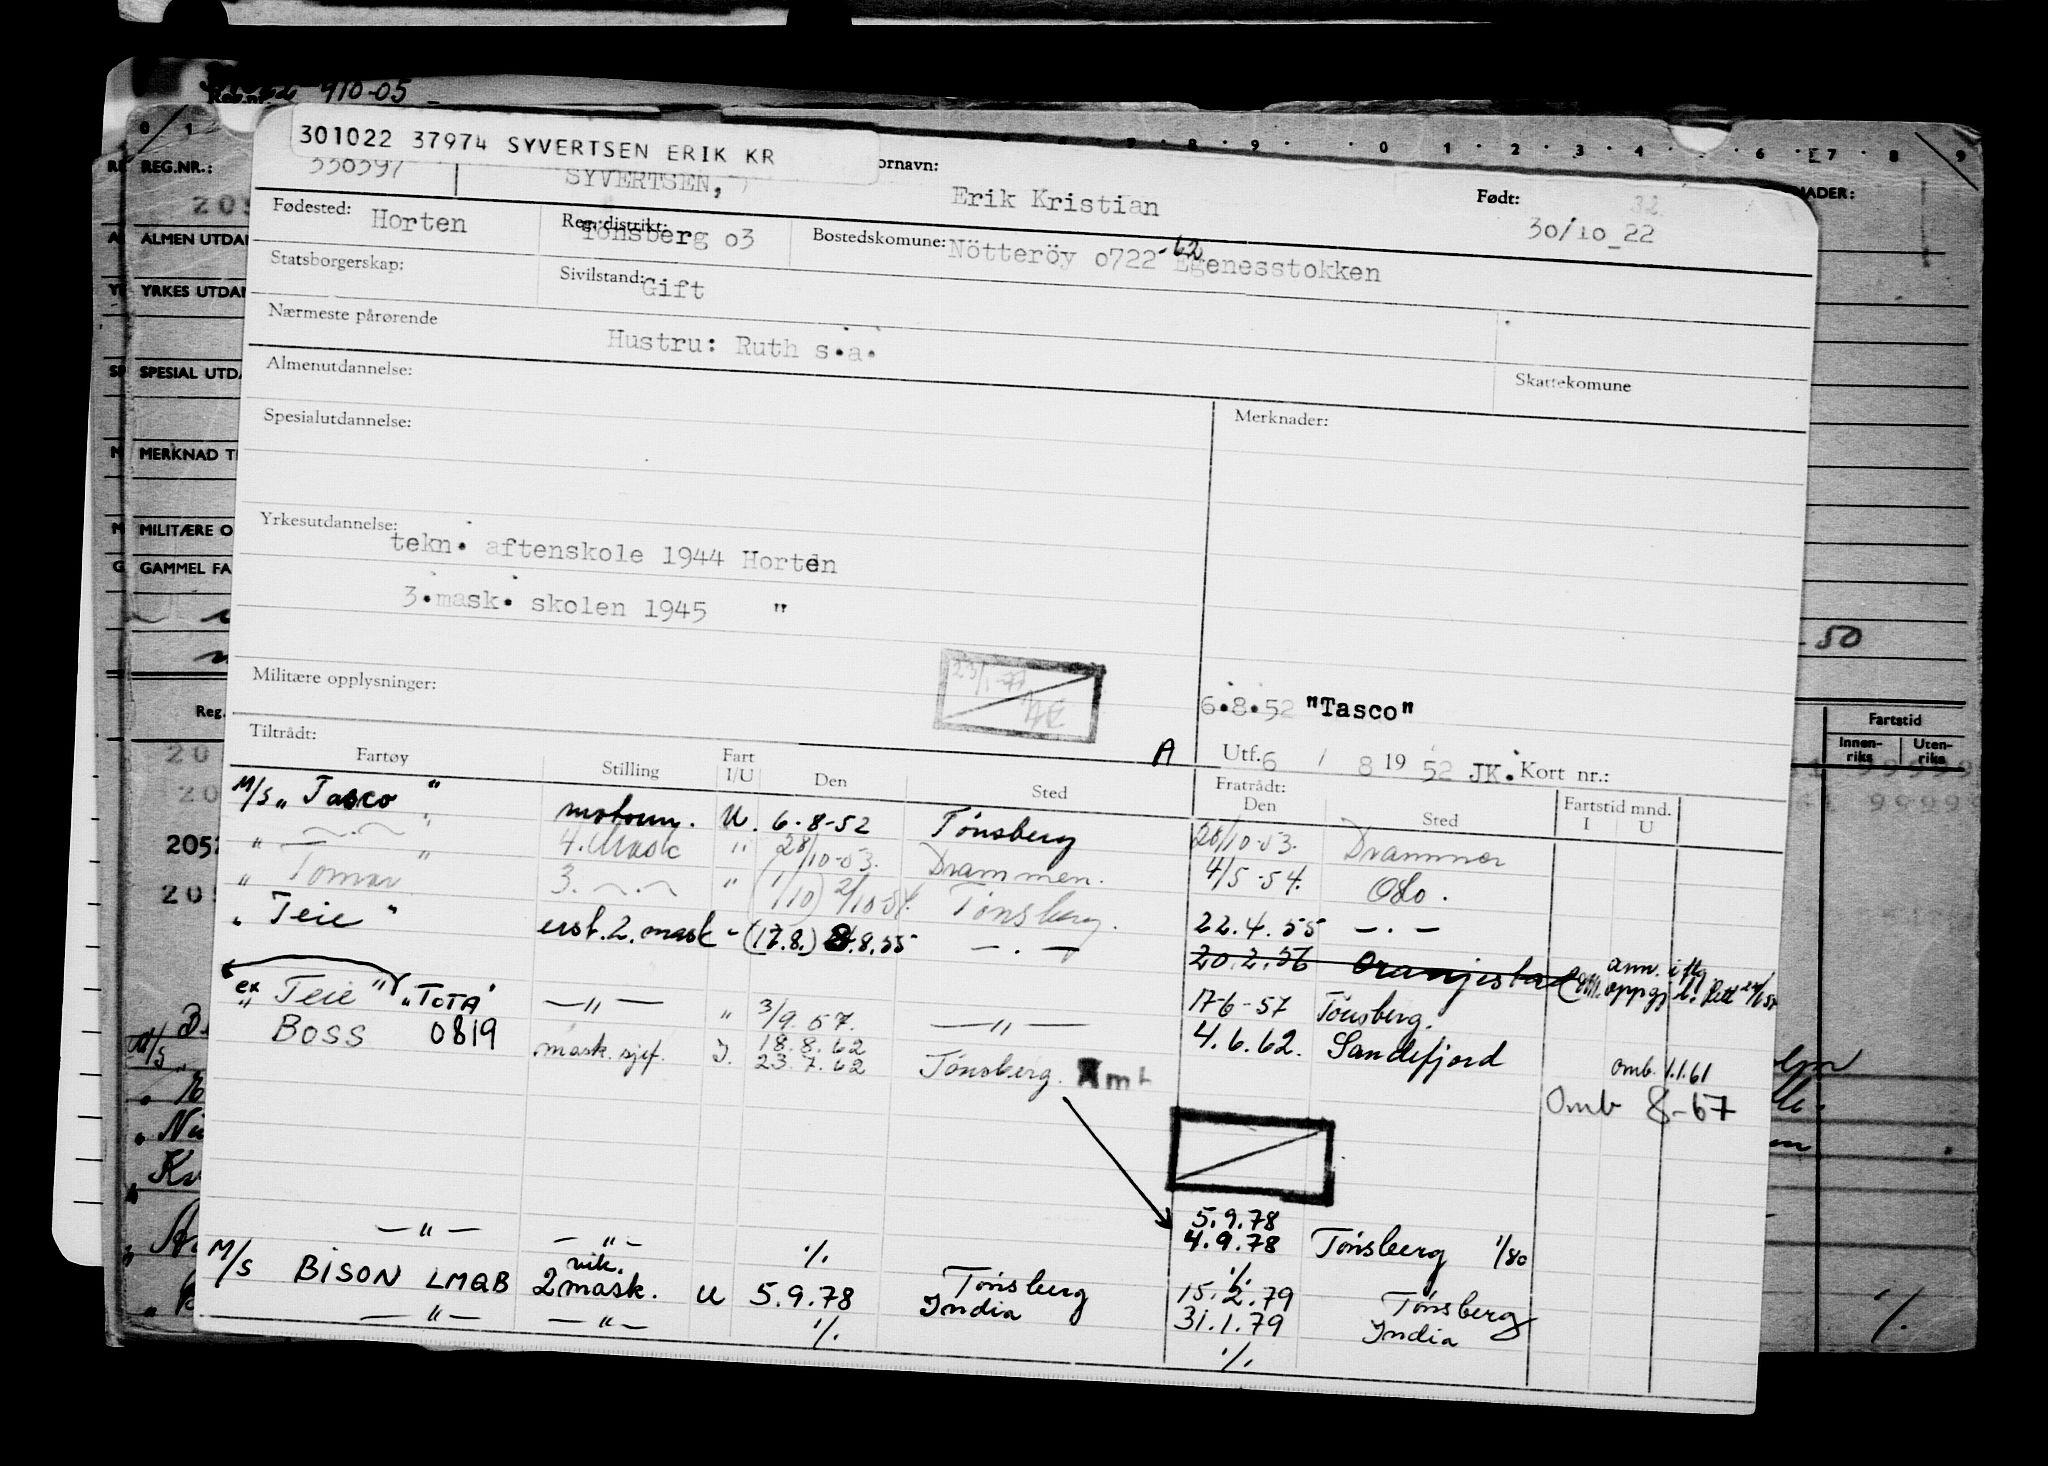 910-05
301022 37974 SYVERTSEN ERIK KR
REG.NR.:
330397 SYVERTSEN, ornavn: Erik Kristian Født: 30/10_22
Fødested: Horten Reg. distrikt: Tønsberg 03 Bostedskomune: Nötteröy 0722 -62 Egenesstokken
ALMEN UTDAN
Statsborgerskap: Sivilstand: Gift
YRKES UTDAN
Nærmeste pårørende Hustru: Ruth s.a.
Almenutdannelse: Skattekomune
SPESIAL UTDA
Spesialutdannelse: Merknader:
MERKNAD T
Yrkesutdannelse: tekn. aftenskole 1944 Horten
MILITÆRE O
GAMMEL FA
3.mask. skolen 1945 "
50
Militære opplysninger: 23/1-77
6.8.52 "Tasco"
Reg.
Tiltrådt: A Utf. 6 / 8 19 52 JK. Kort nr.:
Fartstid
Innen-riks Uten-riks
Fartøy Stilling Fart I/U Den Sted Fratrådt: Den Sted Fartstid mnd. I U
M/S "Tasco" motorm. U. 6.8-52 Tønsberg 28/10-53. Drammen
" —.— " 4. Mask " 28/10-53. Drammen. 4/5-54. Oslo.
" Tomar " 3. —.— " (1/10) 2/10-54. Tønsberg. 22.4.55 —.—
" Teie " erst. 2. mask - (17.8.) 8.8.55 —.— 20.2.56 Oranjestad
ex " Teie " "TOTA" —"— " 3/9.57. —"— 17-6-57 Tönsberg.
BOSS 0819 mask.sjef. I. 18.8.62 23.7.62 Tønsberg. Amt 4.6.62. Sandefjord omb. 1.1.61
Omb 8-67
5.9.78
—"— —"— ./. 4.9.78 Tønsberg 1/80
./.
M/S BISON LMQB vik. 2 mask. U 5.9.78 Tønsberg India 15.2.79 31.1.79 Tønsberg India
—"— —"— ./. ./.